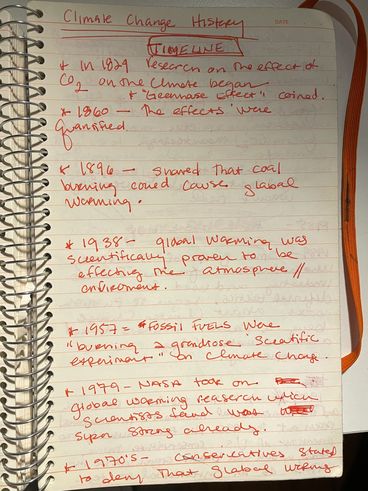 Climate Change History
DATE
TIMELINE
* In 1824 research on the effect of
CO2 on the Climate began
* "Greenhouse Effect" coined.
* 1860 — The effects were
quantified
* 1896 — shared that coal
burning could cause global
warming.
* 1938 — global warming was
scientifically proven to be
effecting the atmosphere //
enviroment.
* 1957 = * Fossil Fuels were
"burning a grandiose scientific
experiment" on climate change.
* 1979 — NASA took on
global warming research which
scientists found was
super strong already.
* 1970's = conservatives started
to deny that global warming